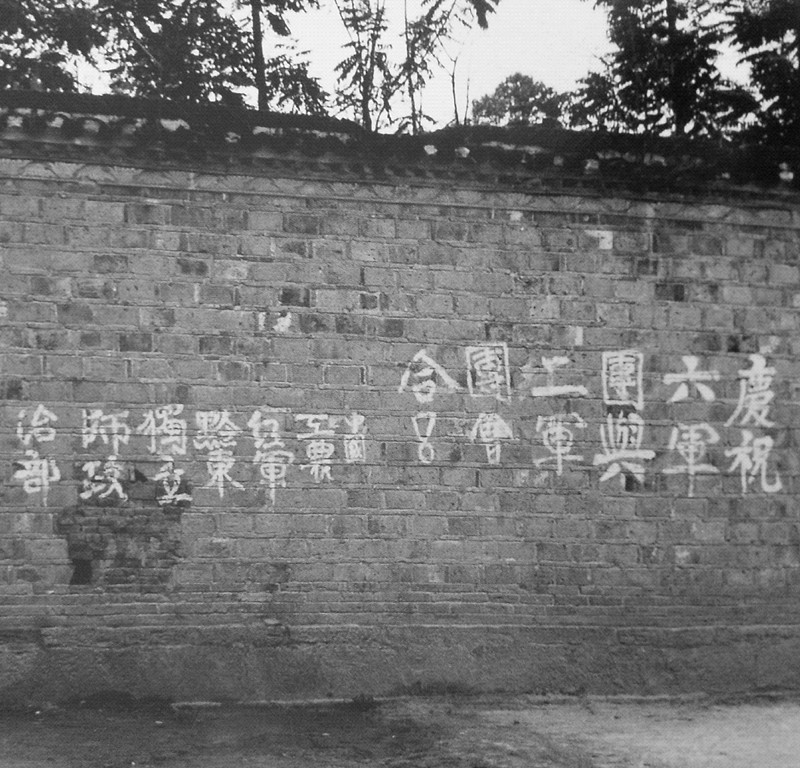 慶祝
六軍
團與
二軍
團會
合！
中國
工農
紅軍
黔東
獨立
師政
治部